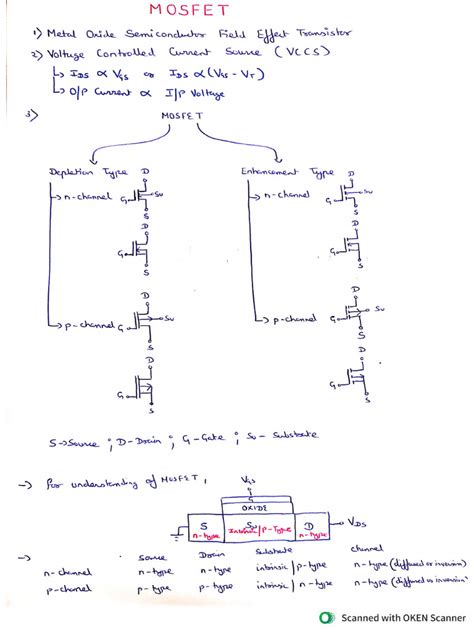 MOSFET
1) Metal Oxide Semiconductor Field Effect Transistor
2) Voltage Controlled Current Source (VCCS)
↳ IDS ∝ VGS or IDS ∝ (VGS - VT)
↳ O/P Current ∝ I/P Voltage
3) MOSFET
Depletion Type D
Enhancement Type D
→ n-channel G Su
→ n-channel G Su
S
S
D
D
G
G
S
S
D
D
Su
Su
→ p-channel G
→ p-channel G
S
S
D
D
G
G
S
S
S→Source ; D-Drain ; G-Gate ; Su - Substrate
→ For understanding of MOSFET,
VGS
G
OXIDE
S Su D VDS
n-type Intrinsic/P-Type n-type
→ Source Drain Substrate channel
n-channel n-type n-type intrinsic/p-type n-type (diffused or inversion)
p-channel p-type p-type intrinsic/n-type n-type (diffused or inversion)
Scanned with OKEN Scanner